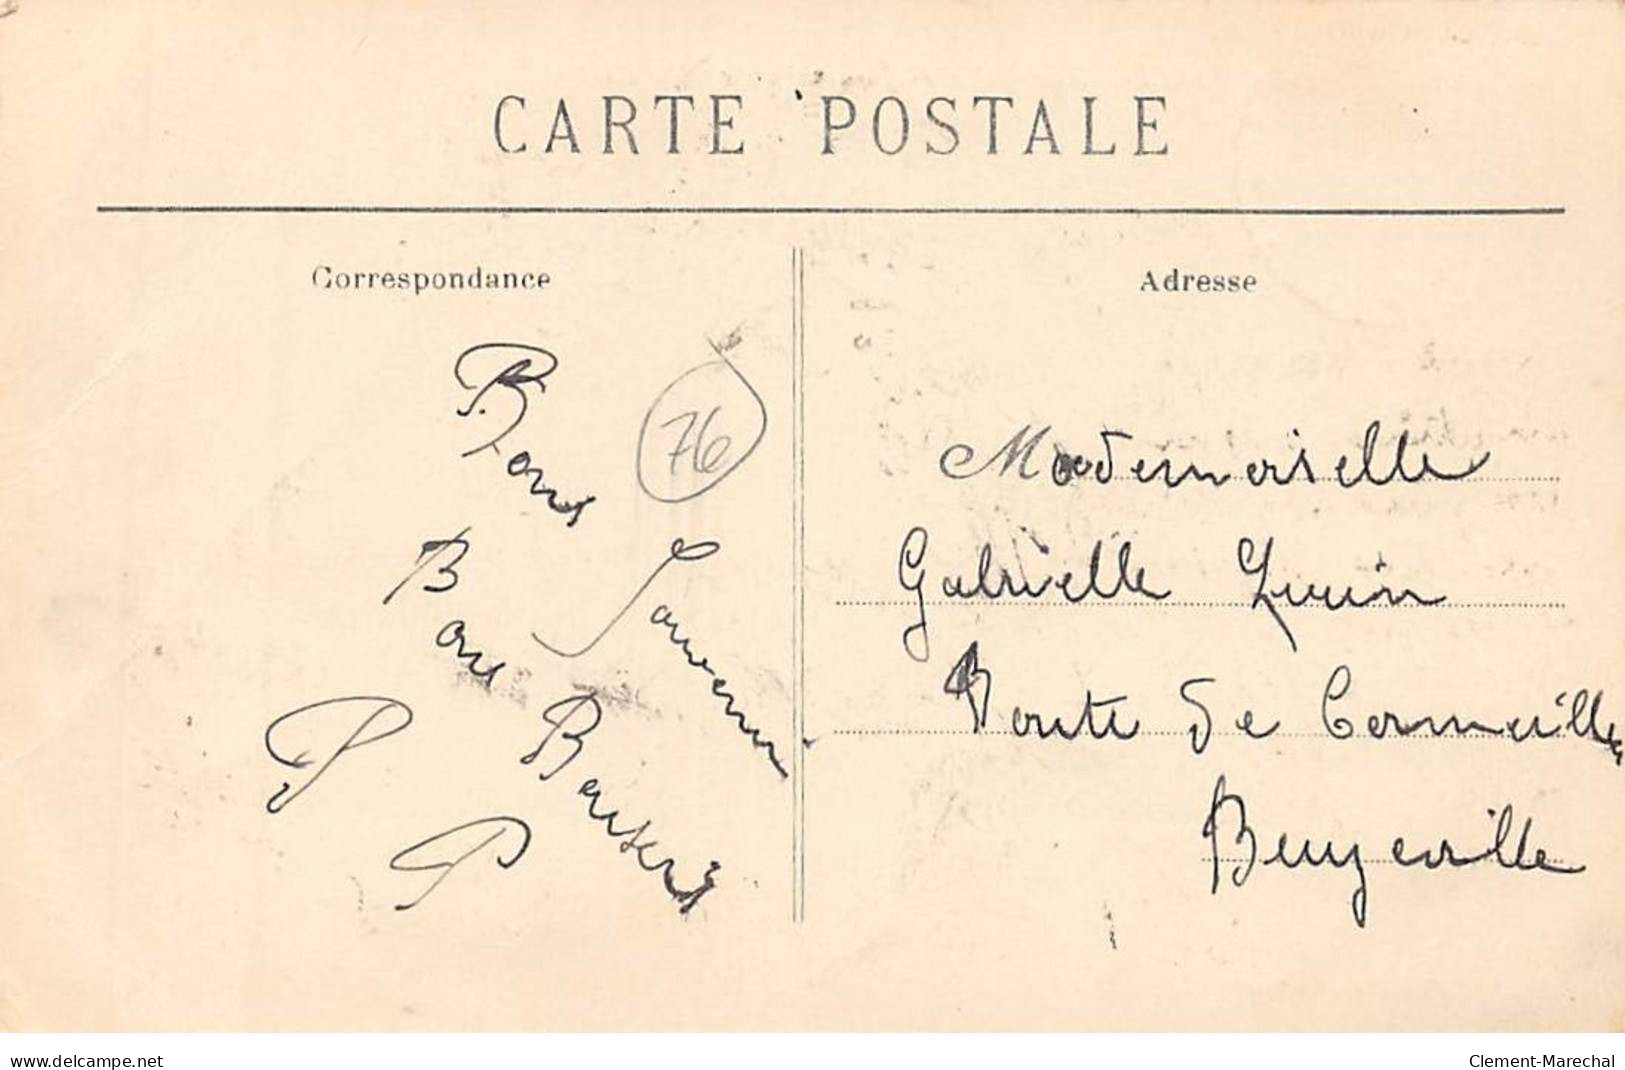 CARTE POSTALE
Correspondance
Bons
Souvenir
Bons
Baisers
P
P
76
Adresse
Mademoiselle
Gabrielle
Route de Cormeilles
Beuzeville
www.delcampe.net
Clement-Marechal